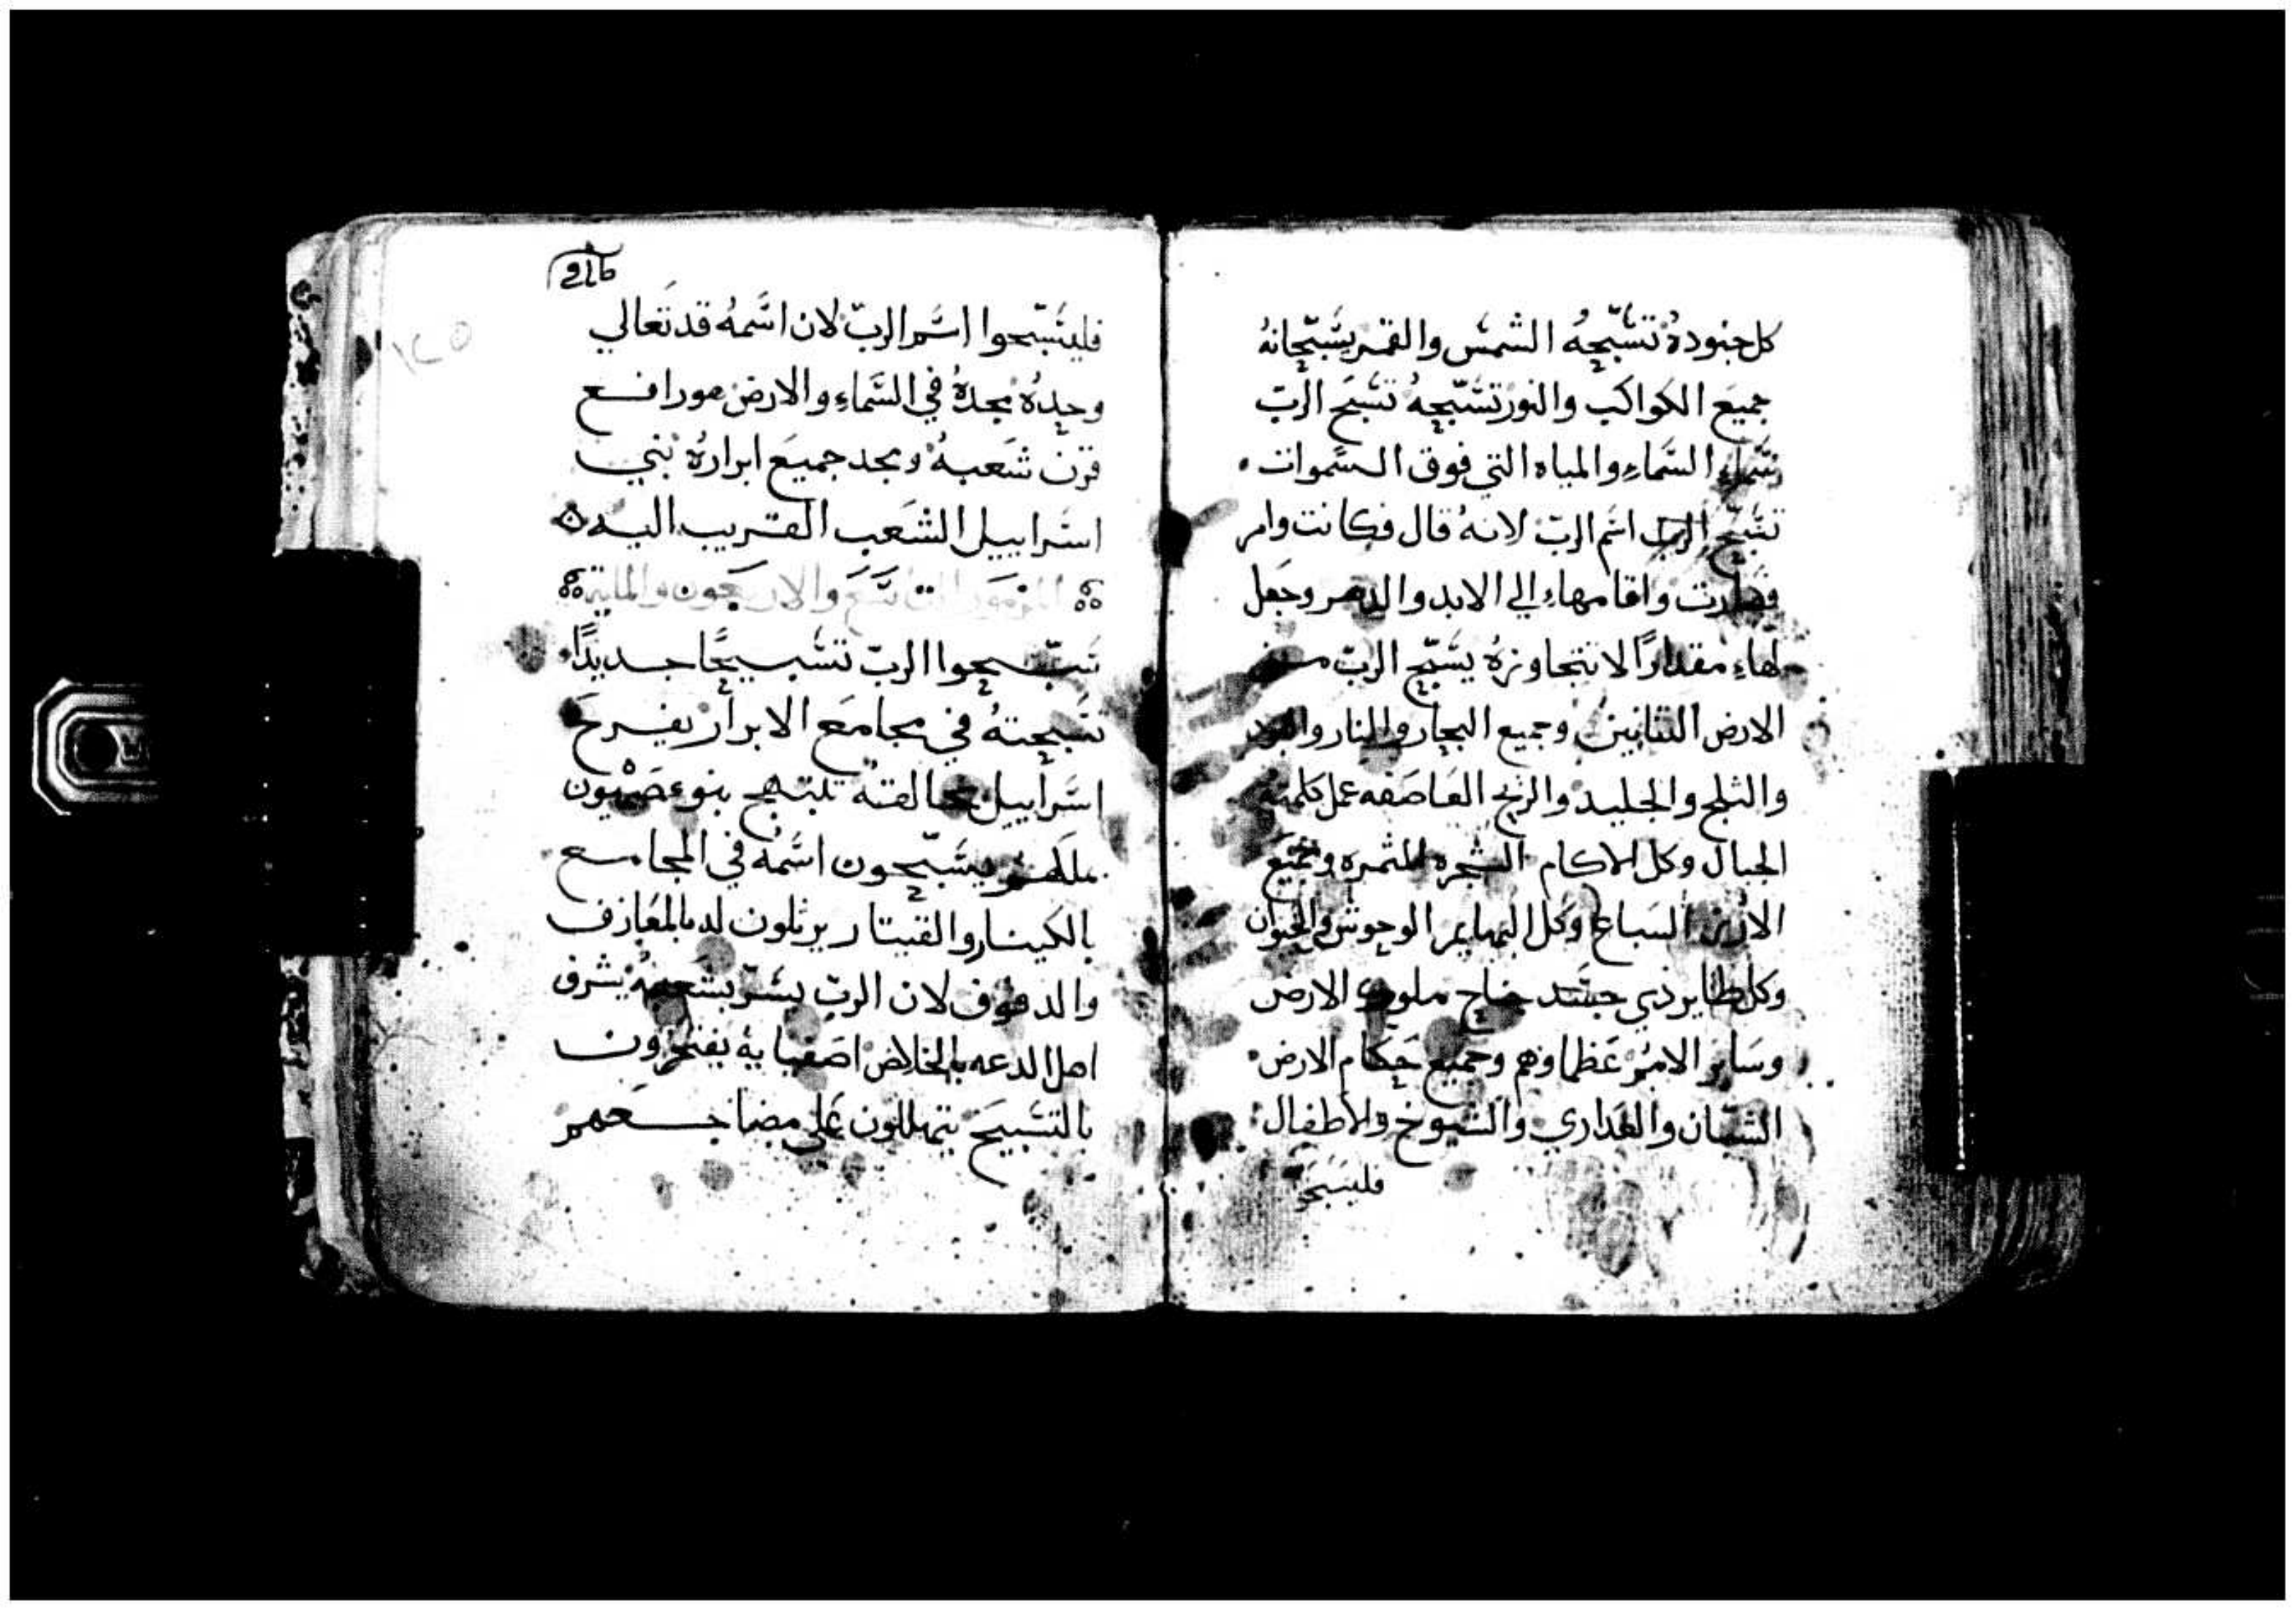 كل جنودهُ تسبّحهُ الشمس والقمر يسبّحانهُ
جميع الكواكب والنور تسبّحهُ تسبح الربّ
سماء السماء والمياه التي فوق السموات
تسبّح الرب اسم الربّ لانهُ قال فكانت وامر
فصارت واقامهاء الي الابد والدهر وجعل
لهاء مقداراً لا تتجاوزهُ يسبّح الربّ من
الارض التنانين وجميع البحار والنار والبرد
والثلج والجليد والريح العاصفه عمل كلمته
الجبال وكل الاكام الشجره المثمره وجميع
الارز السباع وكل البهايم الوحوش والحيوان
وكل طاير ذي جسد جناح ملوك الارض
وساير الامم عظماوهم وجميع حكام الارض
الشبّان والعداري والشيوخ والاطفال
فليسبح
فليسبّحوا اسم الربّ لان اسمهُ قد تعالي
وحدهُ مجدهُ في السماء والارض هو رافع
قرن شعبهُ ومجد جميع ابرارهُ بني
اسراييل الشعب القريب اليه
المزمور التاسع والاربعون والماية
سبّحوا الربّ تسبيحًا جديدًا
تسبحتهُ في مجامع الابرار يفرح
اسراييل بخالقه تبتهج بنوء صهيون
بملكهم يسبّحون اسمهُ في المجامع
بالكينار والقيتار يرتلون له بالمعازف
والدفوف لان الربّ يسّر بشعبهُ يشرف
اهل الدعه بالخلاص اصفيايهُ يفتخرون
بالتسبيح يتهللون علي مضاجعهم